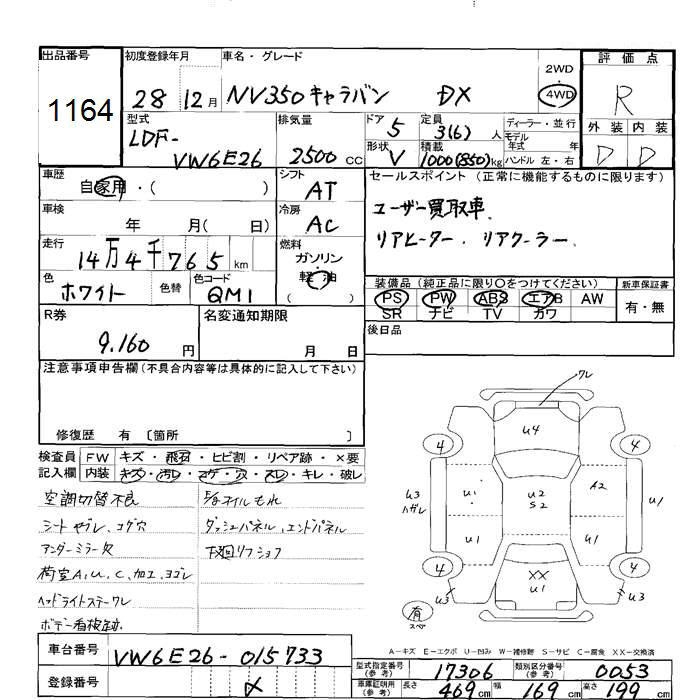 出品番号 初度登録年月 車名・グレード 評価点
1164 28 12月 NV350キャラバン DX 2WD 4WD R
型式 排気量 ドア 定員 ディーラー・並行 外装 内装
LDF-VW6E26 2500cc 5 3(6)人 モデル年式 年 D D
形状 積載 ハンドル 左・右
V 1000(850)kg
車歴 シフト セールスポイント(正常に機能するものに限ります)
自家用・( ) AT ユーザー買取車.
車検 冷房 リアヒーター.リアクーラー.
年 月( 日) AC
走行 燃料
14万4千765km ガソリン
軽油
( )
色 色替 色コード
ホワイト QM1
装備品(純正品に限り○をつけてください) 新車保証書
PS PW ABS エアB AW 有・無
SR ナビ TV カワ
R券 名変通知期限 後日品
9.160円 月 日
注意事項申告欄(不具合内容等は具体的に記入して下さい)
修復歴 有 〔箇所 〕
検査員 FW キズ・飛石・ヒビ割・リペア跡・×要
記入欄 内装 キズ・汚レ・コゲ・穴・スレ・キレ・破レ
空調切替不良
シートヤブレ、コゲ穴
アンダーミラー欠
荷室A,U,C,加工,ヨゴレ
ヘッドライトステーワレ
ボデー看板跡
オイルもれ
ダッシュパネル,エンドパネル
下廻りフショク
ワレ
U4
4 4
U3 ハガレ U1 U2 S2 A2 U1
U1 U1
4 4
XX U1
U3 U3
有 スペア
A-キズ E-エクボ U-凹み W-補修跡 S-サビ C-腐食 XX-交換済
車台番号 VW6E26-015733
登録番号
型式指定番号(参考) 17306 類別区分番号(参考) 0053
車庫証明用(参考) 長さ 469cm 幅 169cm 高さ 199cm